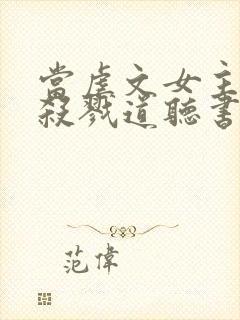 當虐文女主
殺戮道聽書
范偉